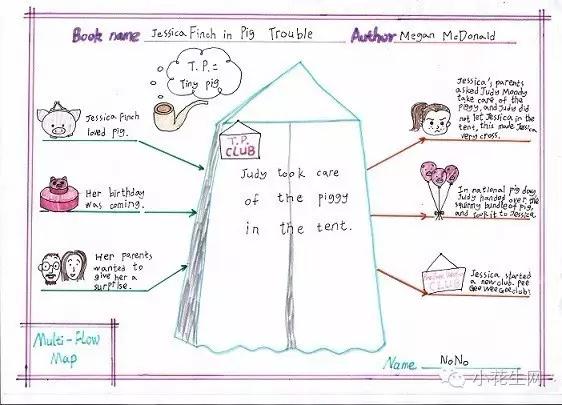 Book name Jessica Finch in Pig Trouble Author Megan McDonald
T.P.=
Tiny pig
Jessica Finch
loved pig.
Her birthday
was coming.
Her parents
wanted to
give her a
surprise.
T.P.
CLUB
Judy took care
of the piggy
in the tent.
Jessica's parents
asked Judy Moody
take care of the
piggy, and Judy did
not let Jessica in the
tent, this made Jessica
very cross.
In national pig day,
Judy handed over the
bundle of pig,
and took it to Jessica.
CLUB
Jessica started
a new club. Pee
Gee WeeGee club!
Multi-Flow
Map
Name NoNo
小花生网